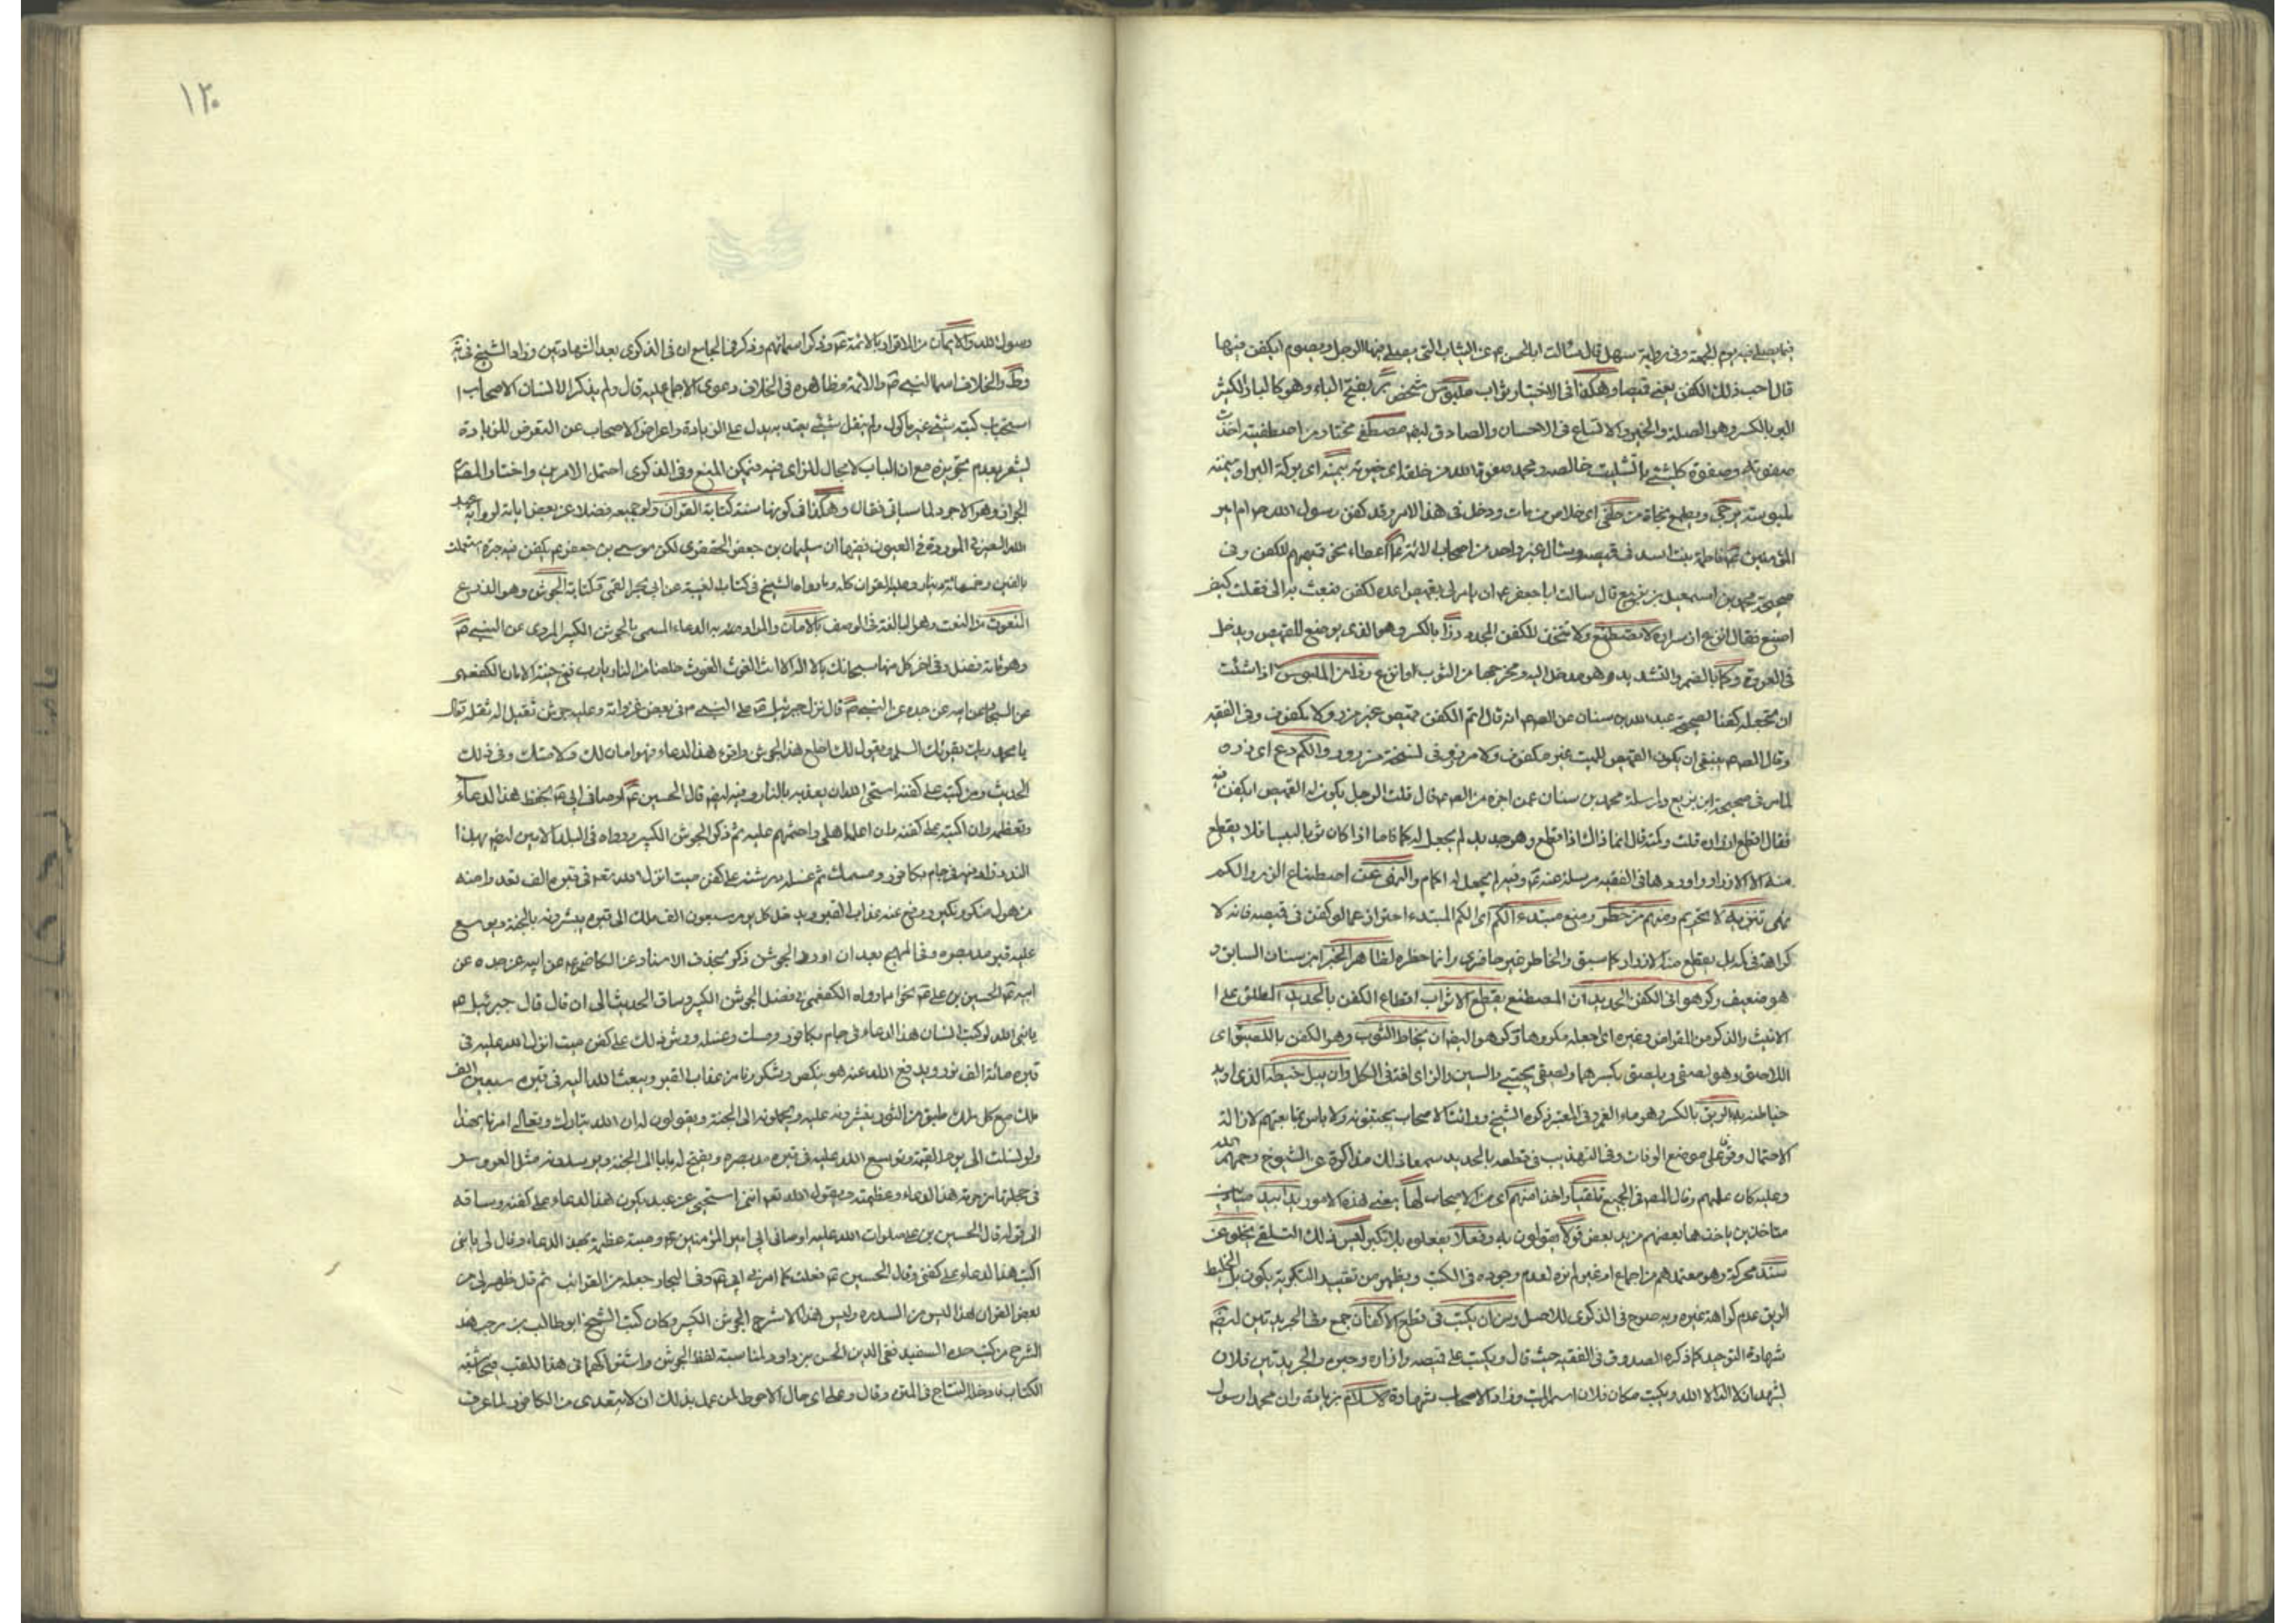 فيما يصلى فيه يوم الجمعة وفى رواية سهل قال سالت ابا الحسن م عن الثياب التى يصلى فيها الرجل ويصوم ايكفن فيها
قال احب ذلك الكفن يعنى قميصا وهكذا فى الاختيار ثواب ملبوس شخص بر بفتح الباء وهو كالبار الكثير
البر بالكسر وهو الصلة والخير والاتساع فى الاحسان والصادق ايضا مصطفى مختار من اصطفيته اخذت
صفوته وصفوة كل شئ بالتثليث خالصه ومحمد صفوة الله من خلقه اى خيرته بيمنه اى بركة البر او يمنه
ملبوسته يرجى ويطمع نجاة من خلفى اى خلاص من مات ودخل فى هذا الامر وقد كفن رسول الله ص ام امير
المؤمنين ع فاطمة بنت اسد فى قميصه وسال غير واحد من اصحاب الائمة ع اعطاء نحو قميصهم للكفن وفى
صحيحة محمد بن اسمعيل بن بزيع قال سالت ابا جعفر ع ان يامر لى بقميص اعده لكفنى فبعث به الى فقلت كيف
اصنع فقال انزع ازراره لا تصطنع ولا تتخذ للكفن المجدد زرا بالكسر وهو الذى يوضع للقميص ويدخل
فى العروة وكما بالضم والتشديد وهو مدخل اليد ومخرجها من الثوب او انزع زرا من الملبوس اذا شئت
ان تجعله كفنا لصحيحة عبد الله بن سنان عن الص م انه قال اتم الكفن قميص غير مزرور ولا مكفوف وفى الفقيه
وقال الص م ينبغى ان يكون القميص للميت غير مكفوف ولا مزرور وفى نسخة مزرور والكم دع اى ذره
لما مر فى صحيحة ابن بزيع وارسله محمد بن سنان عمن اخبره عن الص م قال قلت الرجل يكون له القميص ايكفن فيه
فقال اقطع ازراره قلت وكمه قال انما ذاك اذا قطع وهو جديد لم يجعل له كما فاما اذا كان ثوبا لبيسا فلا يقطع
منه الا الازرار واوردها فى الفقيه مرسلة عنه ع وفيه لم يجعل له اكمام والنهى عن اصطناع الزر والكم
نهى تنزيه لا تحريم ومنهم من حظر ومنع مبتدء الكم اى الكم المبتدء احترازا عما لو كفن فى قميصه فانه لا
كراهة فى كمه بل يقطع منه الازرار كما سبق والحاظر غير جافرى وانما حظره لظاهر الخبر ابن سنان السابق و
هو ضعيف وكرهوا فى الكفن الجديد ان المصطنع بقطع الاثواب اقطاع الكفن بالحديد المطلق على ا
الانيث والذكر من المقراض وغيره اى جعله مكروها وكرهوا ايضا ان يخاط الثوب وهو الكفن باللصيق اى
اللاصق وهو لصقى وبلصقى بكسرهما ولصيقى بجنبى والسين والزاى لغة فى الكل وان يبل خيطه الذى اريد
خياطته به الريق بالكسر وهو ماء الفم وفى المعتبر ذكره الشيخ ورايت الاصحاب يجتنبونه ولا باس بمتابعتهم لازالة
الاحتمال ووقوف على موضع الوفاق وفى التهذيب فى قطعه بالحديد سمعنا ذلك مذاكرة عن الشيوخ رحمهم الله
وعليه كان عملهم وقال المص فى الجميع تلقيا واخذا منهم اى من الاصحاب لها يعنى هذه الامور يدا بيد
متاخذين ياخذها بعضهم من يد بعض قولا يقولون به وفعلا يفعلوه بلا نكير ليس ذلك التلقى بخلو عن
سند محركة وهو معتمدهم من اجماع او غير لم نره لعدم وجوده فى الكتب ويظهر من تقييد التكرية بكون بل الخيط
الريق عدم كراهة غيره وبه صرح فى الذكرى للاصل وسن ان يكتب فى قطع الاكفان جمع وفى الجريدتين ايضا
شهادة التوحيد كما ذكره الصدوق فى الفقيه حيث قال ويكتب على قميصه وازاره وحبره والجريدتين فلان
يشهد ان لا اله الا الله ويكتب مكان فلان اسم الميت وزاد الاصحاب شهادة الاسلام بزيادة وان محمدا رسول
١٢٠
رسول الله والايمان من الاقرار بالائمة ع وذكر اسمائهم وذكر فى الجامع ان فى الذكرى بعد الشهادتين وزاد الشيخ فى يه
وط والخلاف اسماء النبى ص والائمة وظاهره فى الخلاف دعوى الاجماع عليه قال ولم يذكر ابا لسان الاصحاب ا
استحباب كتبه شئ غير ماكول ولم ينقل شئ يعتد به يدل على الزيادة واعراض الاصحاب عن التعرض للزيادة
يشعر بعدم تجويزه مع ان الباب لا مجال للراى فيه فيمكن المنع وفى الذكرى احتمل الامرين واختار المص
الجواز وهو الاجود لما سياتى فقال وهكذا فكونها سنة كتابة القرآن ولو جميعه فضلا عن بعض اياته لرواية عبد
الله المروية فى العيون فيها ان سليمان بن جعفر الجعفرى لكن موسى بن جعفر ع يكفن فيه حبرة استعملت
بالفين وخمسمائة دينار وعليها القرآن كله وما رواه الشيخ فى كتاب الغيبة عن ابى القمى كتابة الجوشن وهو الدرع
النعوت من النعت وهو المبالغة فى الوصف بالامان والمراد به الدعاء المسمى بالجوشن الكبير المروى عن النبى ص
وهو مائة فصل وفى اخر كل منها سبحانك يا لا اله الا انت الغوث الغوث خلصنا من النار يا رب ففى جنة الامان للكفعمى
عن السجاد عن ابيه عن جده عن النبى ص قال نزل جبرئيل ع على النبى ص فى بعض غزواته وعليه جوشن ثقيل اله ثقله فقال
يا محمد ربك يقرئك السلم ويقول لك اخلع هذا الجوشن واقرء هذا الدعاء فهو امان لك ولامتك وفى ذلك
الحديث ومن كتبه على كفنه استحى الله ان يعذبه بالنار وفيه ايضا قال الحسين ع اوصانى ابى ع بحفظ هذا الدعاء
وتعظيمه وان اكتبه على كفنه وان اعلمه اهلى واحثهم عليه ثم ذكر الجوشن الكبير ورواه فى البلد الامين ايضا بهذا
السند وزاد فيه فى جام بكافور ومسك ثم غسله ورشه على كفن ميت انزل الله تعالى فى قبره الف نور وامنه
من هول منكر ونكير ورفع عنه عذاب القبر ويدخل كل يوم سبعون الف ملك الى قبره يبشرونه بالجنة ويوسع
عليه قبره مد بصره وفى المهج بعد ان اورد الجوشن ذكر بحذف الاسناد عن الكاظم ع عن ابيه عن جده عن
ابيه ع الحسين بن على ع نحوا مما رواه الكفعمى فى فضل الجوشن الكبير وساق الحديث الى ان قال قال جبرئيل ع
يا نبى الله لو كتب انسان هذا الدعاء فى جام بكافور ومسك وغسله ورش ذلك على كفن ميت انزل الله عليه فى
قبره مائة الف نور ويدفع الله عنه هول منكر ونكير ويامن من عذاب القبر ويبعث الله اليه فى قبره سبعين الف
ملك مع كل ملك طبق من النور ينثرونه عليه ويحملونه الى الجنة ويقولون له ان الله تبارك وتعالى امرنا بهذا
ونونسك الى يوم القيمة ويوسع الله عليه فى قبره مد بصره ويفتح له بابا الى الجنة ويوسدونه مثل العروس
فى حجلتها من حرمة هذا الدعاء وعظمته ويقول الله تعالى اننى استحيى عن عبد يكون هذا الدعاء على كفنه وساقه
الى قوله قال الحسين بن على صلوات الله عليه اوصانى ابى امير المؤمنين ع وصية عظيمة بهذا الدعاء وقال لى يا بنى
اكتب هذا الدعاء على كفنى وقال الحسين ع فعلت كما امرنى ابى ع وفى البحار جعله من الغرائب ثم قال ظهر لى من
بعض القرائن ان هذا ليس من السيد ره وليس هذا الا شرح الجوشن الكبير وكان كتب الشيخ ابو طالب بن رجب هذا
الشرح من كتب جده السعيد تقى الدين الحسن بن داود لمناسبة لفظ الجوشن واشتراكهما فى هذا اللقب فى حاشية
الكتاب فادخله النساخ فى المتن وقال وعلى اى حال الاحوط لمن عمل بذلك ان لا يتعدى من الكافور لما عرف